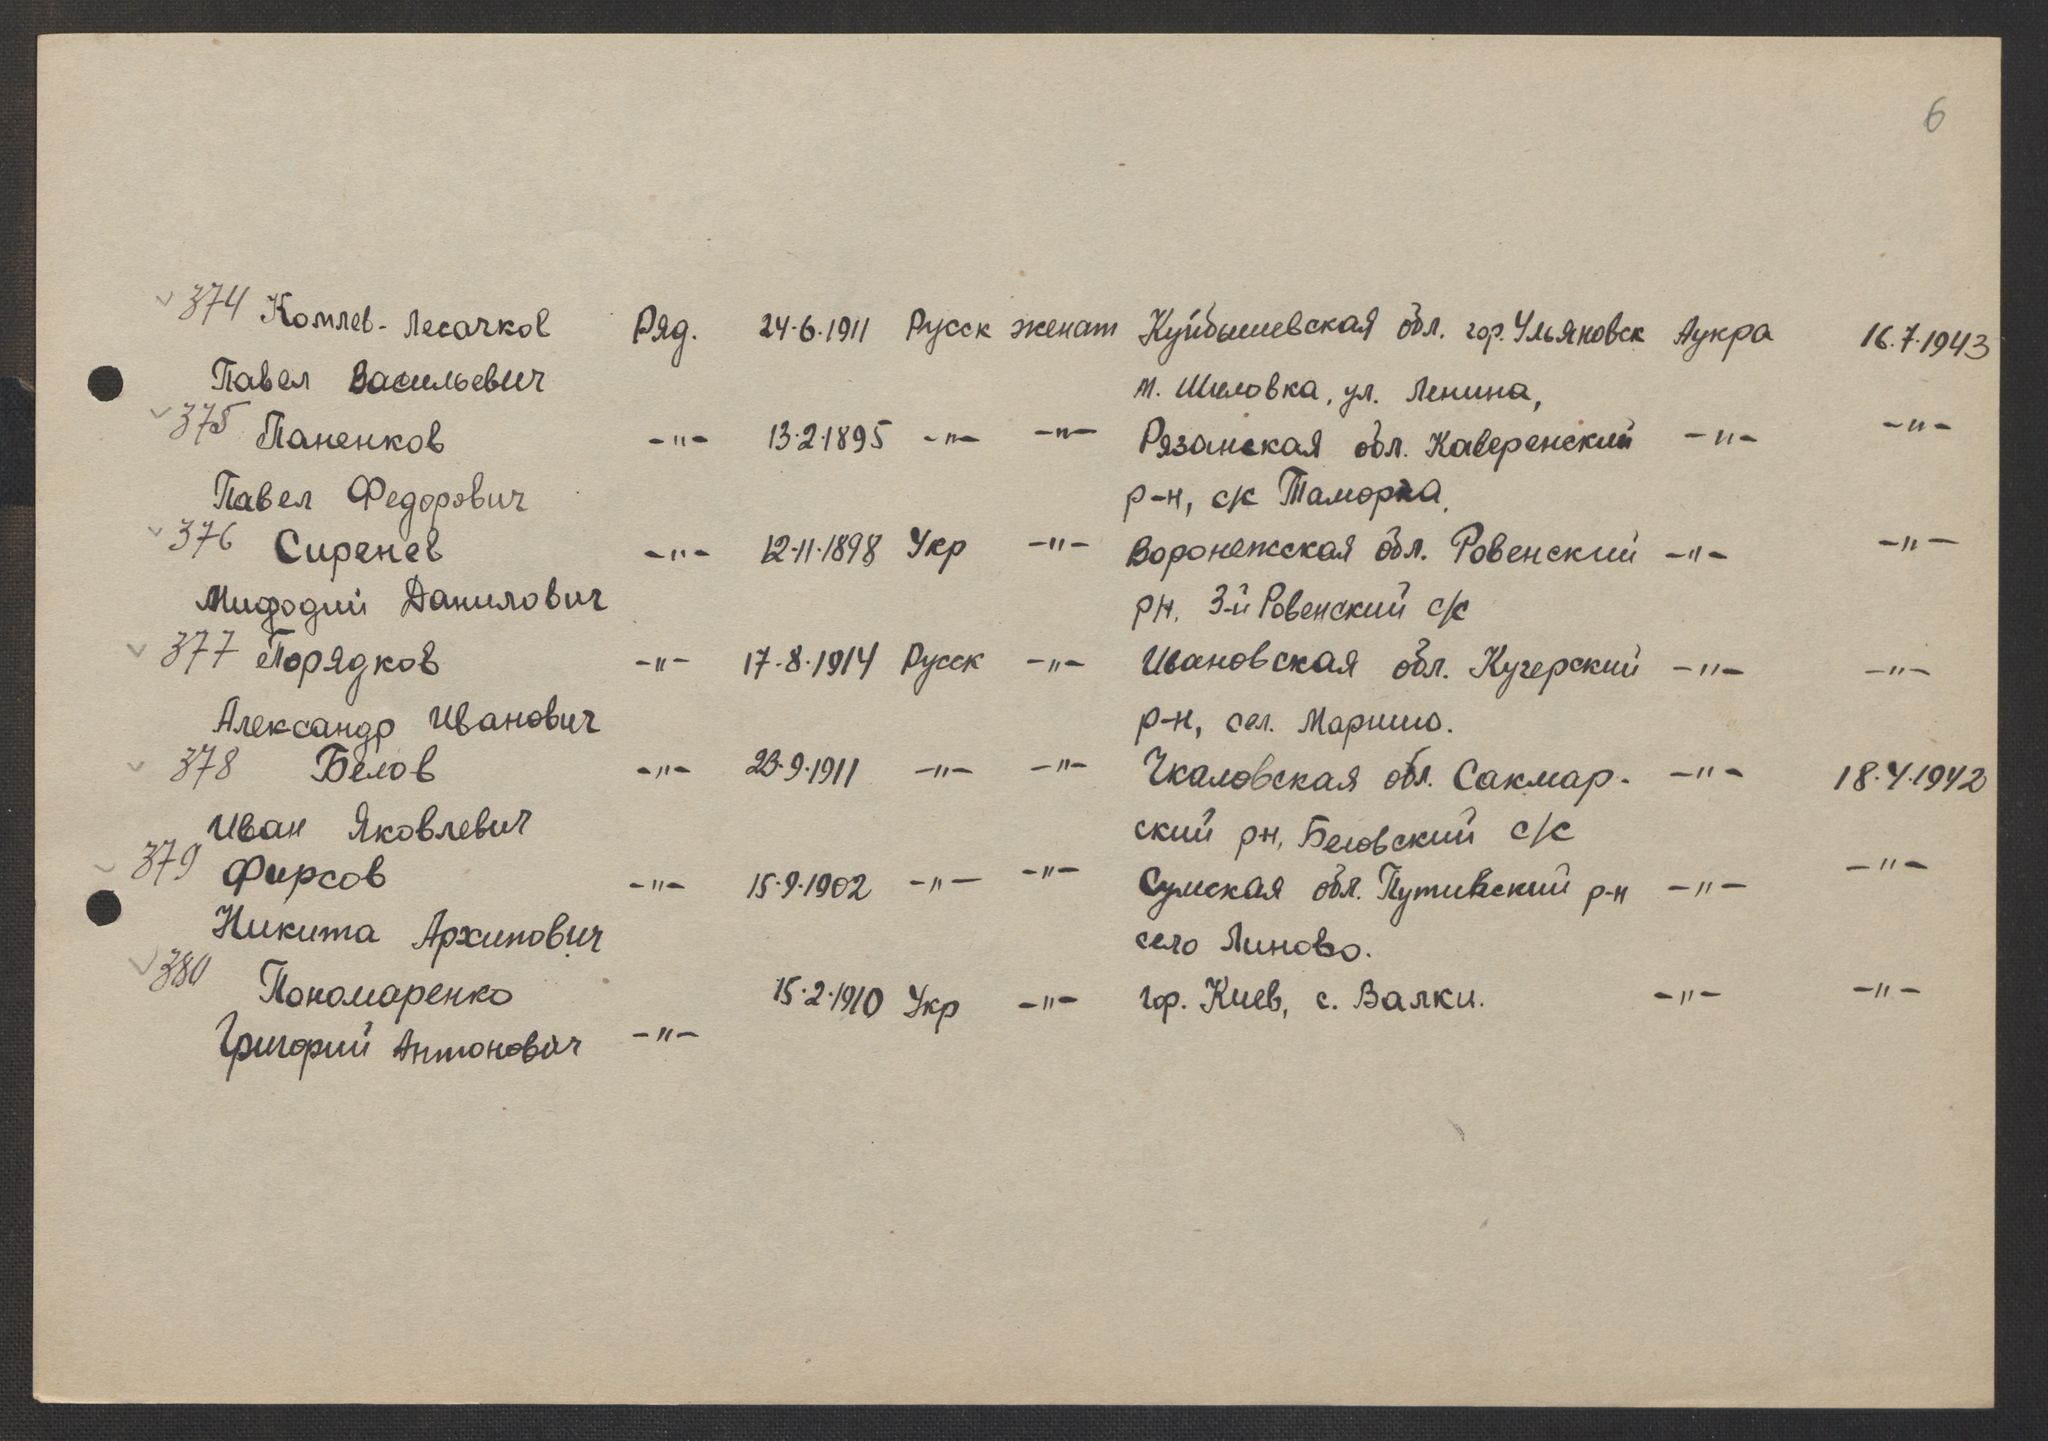 6
374 Комлев-Лесачков Ряд. 24.6.1911 Русск женат Куйбышевская обл. гор. Ульяновск Аукра 16.7.1943
Павел Васильевич м. Шиловка, ул. Ленина,
375 Паненков -"- 13.2.1895 -"- -"- Рязанская обл. Каверенский -"- -"-
Павел Федорович р-н, с/к Таморка.
376 Сиренев -"- 12.11.1898 Укр -"- Воронежская обл. Ровенский -"- -"-
Мифодий Данилович рн. 3-й Ровенский с/с
377 Порядков -"- 17.8.1914 Русск -"- Ивановская обл. Кучерский -"- -"-
Александр Иванович р-н, сел. Маришо.
378 Белов -"- 23.9.1911 -"- -"- Чкаловская обл. Сакмар- -"- 18.4.1942
Иван Яковлевич ский рн, Беловский с/с
379 Фирсов -"- 15.9.1902 -"- -"- Сумская обл. Путивский р-н -"- -"-
Никита Архипович село Линово.
380 Пономаренко 15.2.1910 Укр -"- гор. Киев, с. Валки. -"- -"-
Григорий Антонович -"-